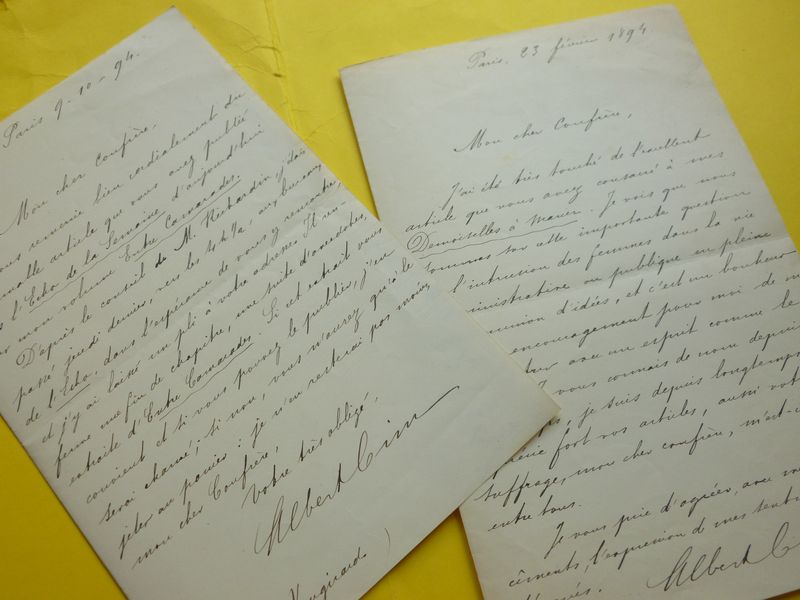 Paris 9-10-94.
Mon cher Confrère,
vous remercie bien cordialement du
article que vous avez publié
l'Echo de la Semaine d'aujourd'hui
sur mon volume Entre Camarades.
D'après le conseil de M. Richardin, j'étais
passé jeudi dernier, vers les 4h½, aux bureaux
de l'Echo, dans l'espérance de vous y rencontrer,
et j'y ai laissé un pli à votre adresse. Il ren-
ferme une fin de chapitre, une suite d'anecdotes
extraite d'Entre Camarades. Si cet extrait vous
convient et si vous pouvez le publier, j'en
serai charmé; si non, vous n'aurez qu'à le
jeter au panier: je n'en resterai pas moins,
mon cher Confrère,
Votre très obligé,
Albert Cim
Paris, 23 février 1894.
Mon cher Confrère,
J'ai été très touché de l'excellent
article que vous avez consacré à mes
Demoiselles à marier. Je vois que nous
sommes sur cette importante question
l'intrusion des femmes dans la vie
administrative ou publique en pleine
communion d'idées, et c'est un bonheur
encouragement pour moi de me
avec un esprit comme le
vous connais de nom depuis
je suis depuis longtemps
fort vos articles, aussi votre
suffrage, mon cher confrère, m'est-il
entre tous.
Je vous prie d'agréer, avec mes
l'expression de mes sent
Albert C